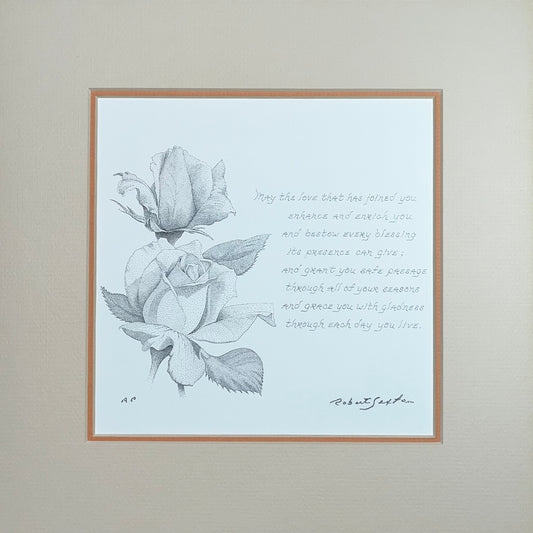 May the love that has joined you
enhance and enrich you
and bestow every blessing
its presence can give;
and grant you safe passage
through all of your seasons
and grace you with gladness
through each day you live.
A.P.
Robert Sexton